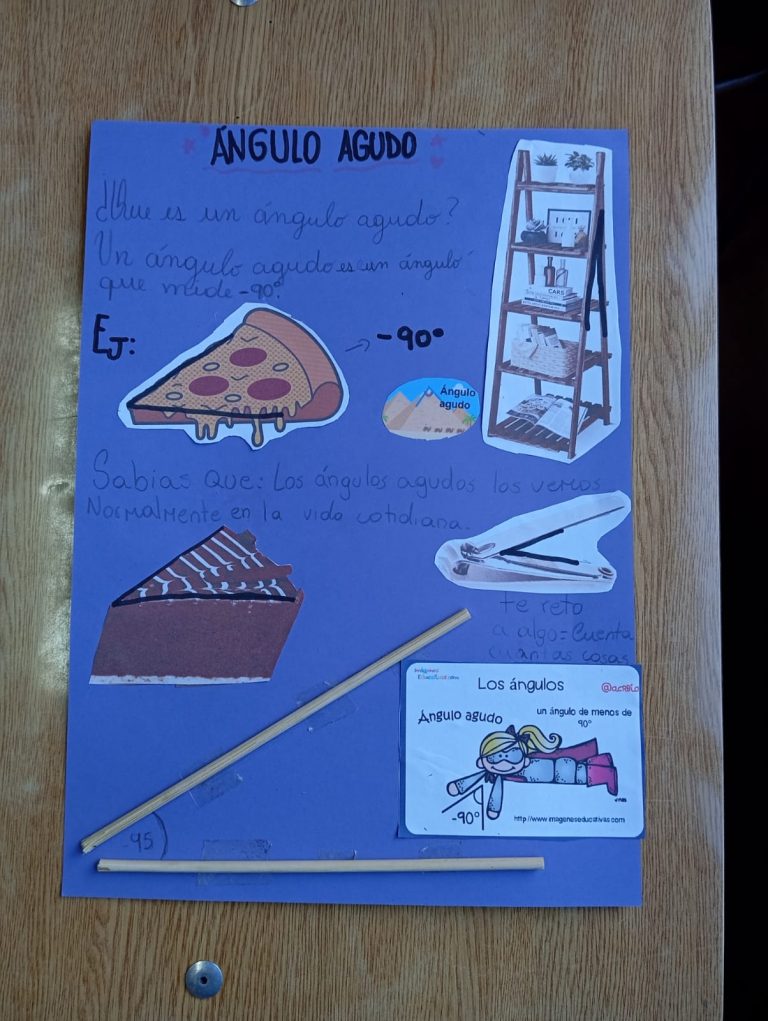 ÁNGULO AGUDO
¿Que es un ángulo agudo?
Un ángulo agudo es un ángulo
que mide -90°.
EJ:
-90°
Ángulo
agudo
CARS
Sabias que: Los ángulos agudos los vemos
Normalmente en la vida cotidiana.
te reto
a algo = Cuenta
cuantas cosas
-45
Imágenes
Educativas.com
Los ángulos
Ángulo agudo
un ángulo de menos de
90°
-90°
http://www.imageneseducativas.com